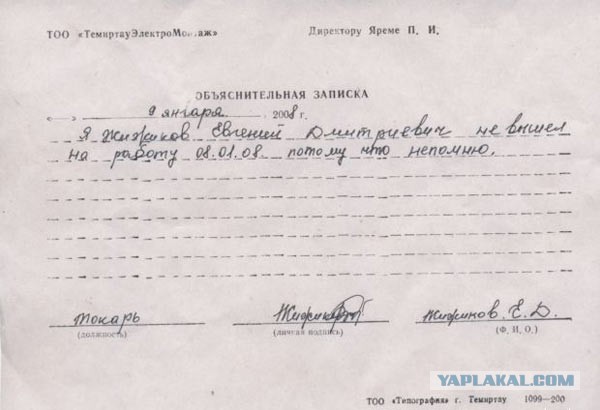 ТОО «ТемиртауЭлектроМонтаж» Директору Яреме П. И.
ОБЪЯСНИТЕЛЬНАЯ ЗАПИСКА
«9 января 2008 г.
Я Жижиков Евгений Дмитриевич не вышел
на работу 08.01.08. потому что непомню.
токарь Жижиков Е. Д.
(должность) (личная подпись) (Ф. И. О.)
YAPLAKAL.COM
ТОО «Типография» г. Темиртау 1099—200